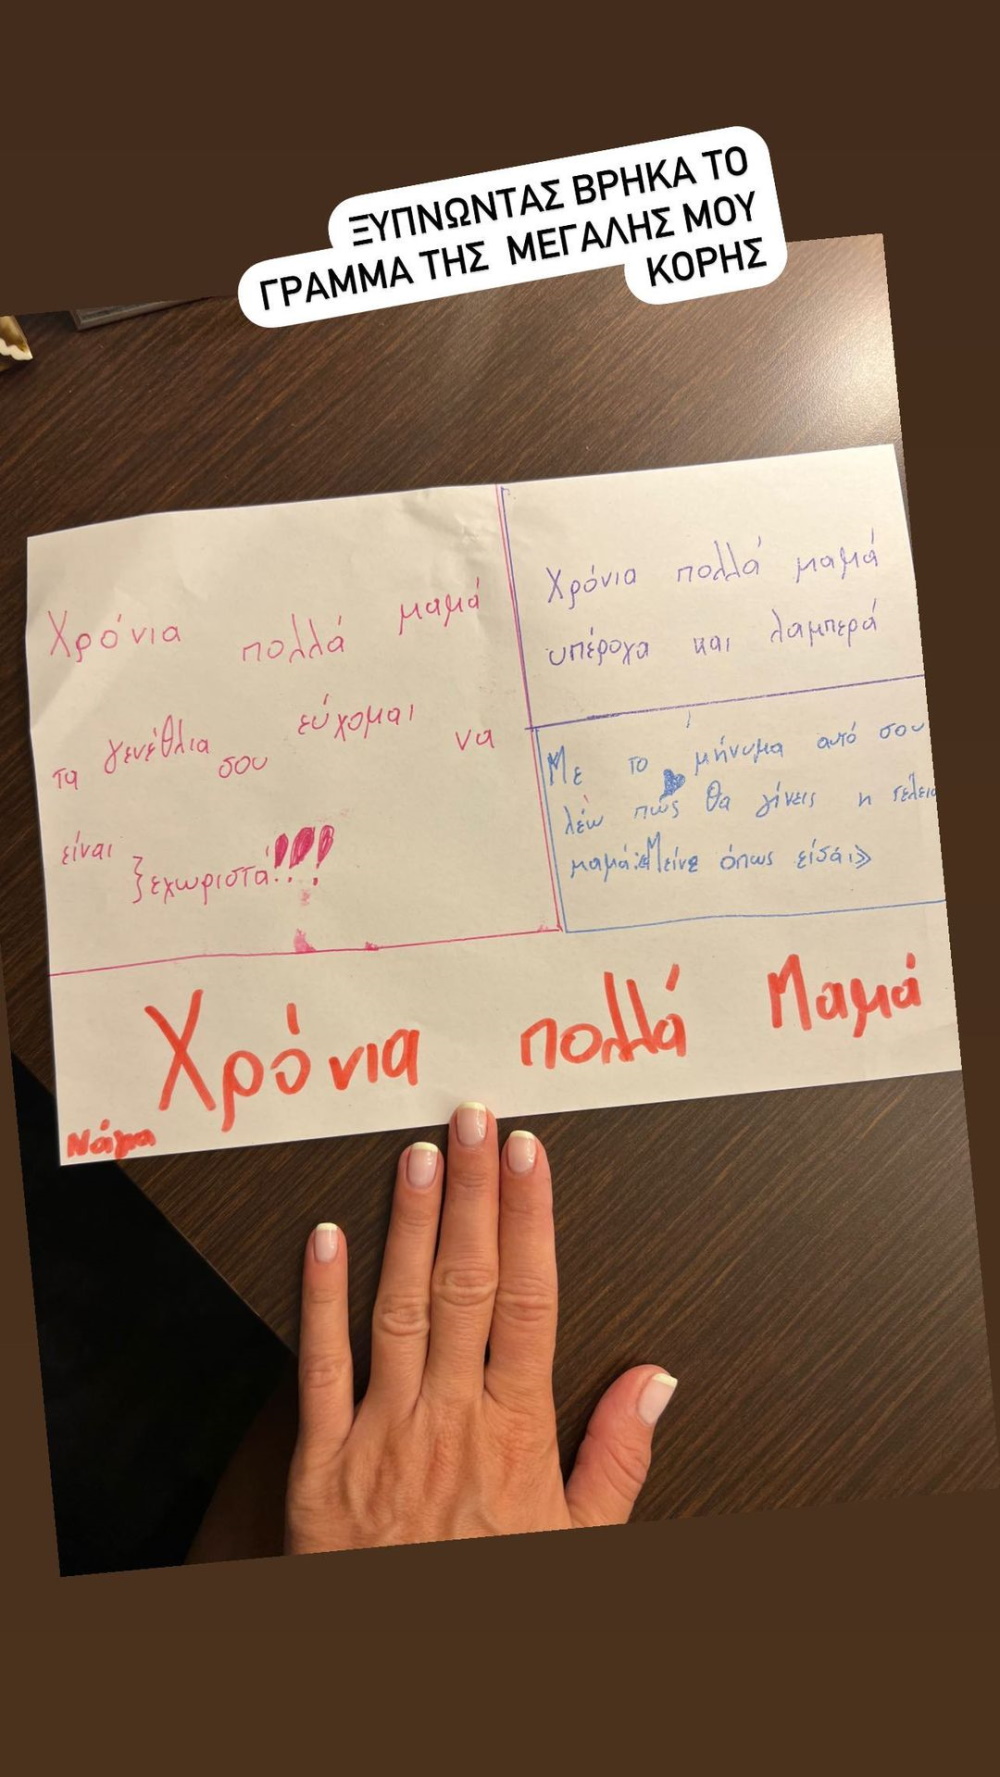 ΞΥΠΝΩΝΤΑΣ ΒΡΗΚΑ ΤΟ
ΓΡΑΜΜΑ ΤΗΣ ΜΕΓΑΛΗΣ ΜΟΥ
ΚΟΡΗΣ
Χρόνια πολλά μαμά
τα γενέθλια σου εύχομαι να
είναι ξεχωριστά!!!
Χρόνια πολλά μαμά
υπέροχα και λαμπερά
Με το μήνυμα αυτό σου
λέω πώς θα γίνεις η τέλεια
μαμά: «Μείνε όπως είσαι»
Χρόνια πολλά Μαμά